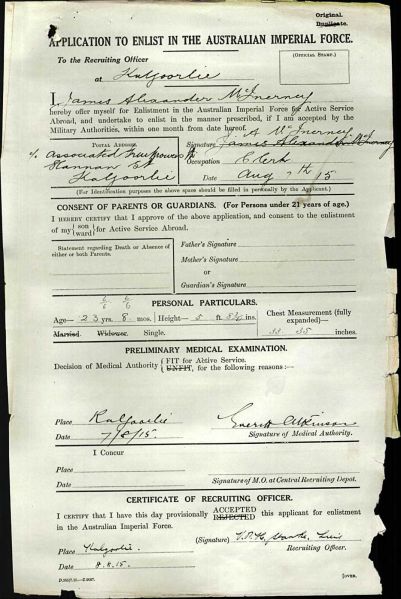 Original.
Duplicate.
APPLICATION TO ENLIST IN THE AUSTRALIAN IMPERIAL FORCE.
To the Recruiting Officer
(OFFICIAL STAMP.)
at Kalgoorlie
I, James Alexander McInerney
hereby offer myself for Enlistment in the Australian Imperial Force for Active Service
Abroad, and undertake to enlist in the manner prescribed, if I am accepted by the
Military Authorities, within one month from date hereof.
J. A McInerney
POSTAL ADDRESS
Signature James Alexander McInerney
c/o Associated
Occupation Clerk
Hannan St
Kalgoorlie
Date Aug 7th 15
(For Identification purposes the above space should be filled in personally by the Applicant.)
CONSENT OF PARENTS OR GUARDIANS. (For Persons under 21 years of age.)
I HEREBY CERTIFY that I approve of the above application, and consent to the enlistment
of my son ward for Active Service Abroad.
Statement regarding Death or Absence of
either or both Parents.
Father's Signature
Mother's Signature
or
Guardian's Signature
6/6 6/6
PERSONAL PARTICULARS.
Age— 23 yrs. 8 mos.
Height— 5 ft. ins.
Chest Measurement (fully
expanded)—
33 35 inches.
Married. Widower. Single.
PRELIMINARY MEDICAL EXAMINATION.
Decision of Medical Authority FIT for Active Service.
UNFIT, for the following reasons :—
Place Kalgoorlie
Everitt Atkinson
Date 7/8/15.
Signature of Medical Authority.
I Concur
Place
Date
Signature of M.O. at Central Recruiting Depot.
CERTIFICATE OF RECRUITING OFFICER.
I CERTIFY that I have this day provisionally ACCEPTED REJECTED this applicant for enlistment
in the Australian Imperial Force.
(Signature)
Place Kalgoorlie.
Recruiting Officer.
Date 8.8.15.
[OVER.